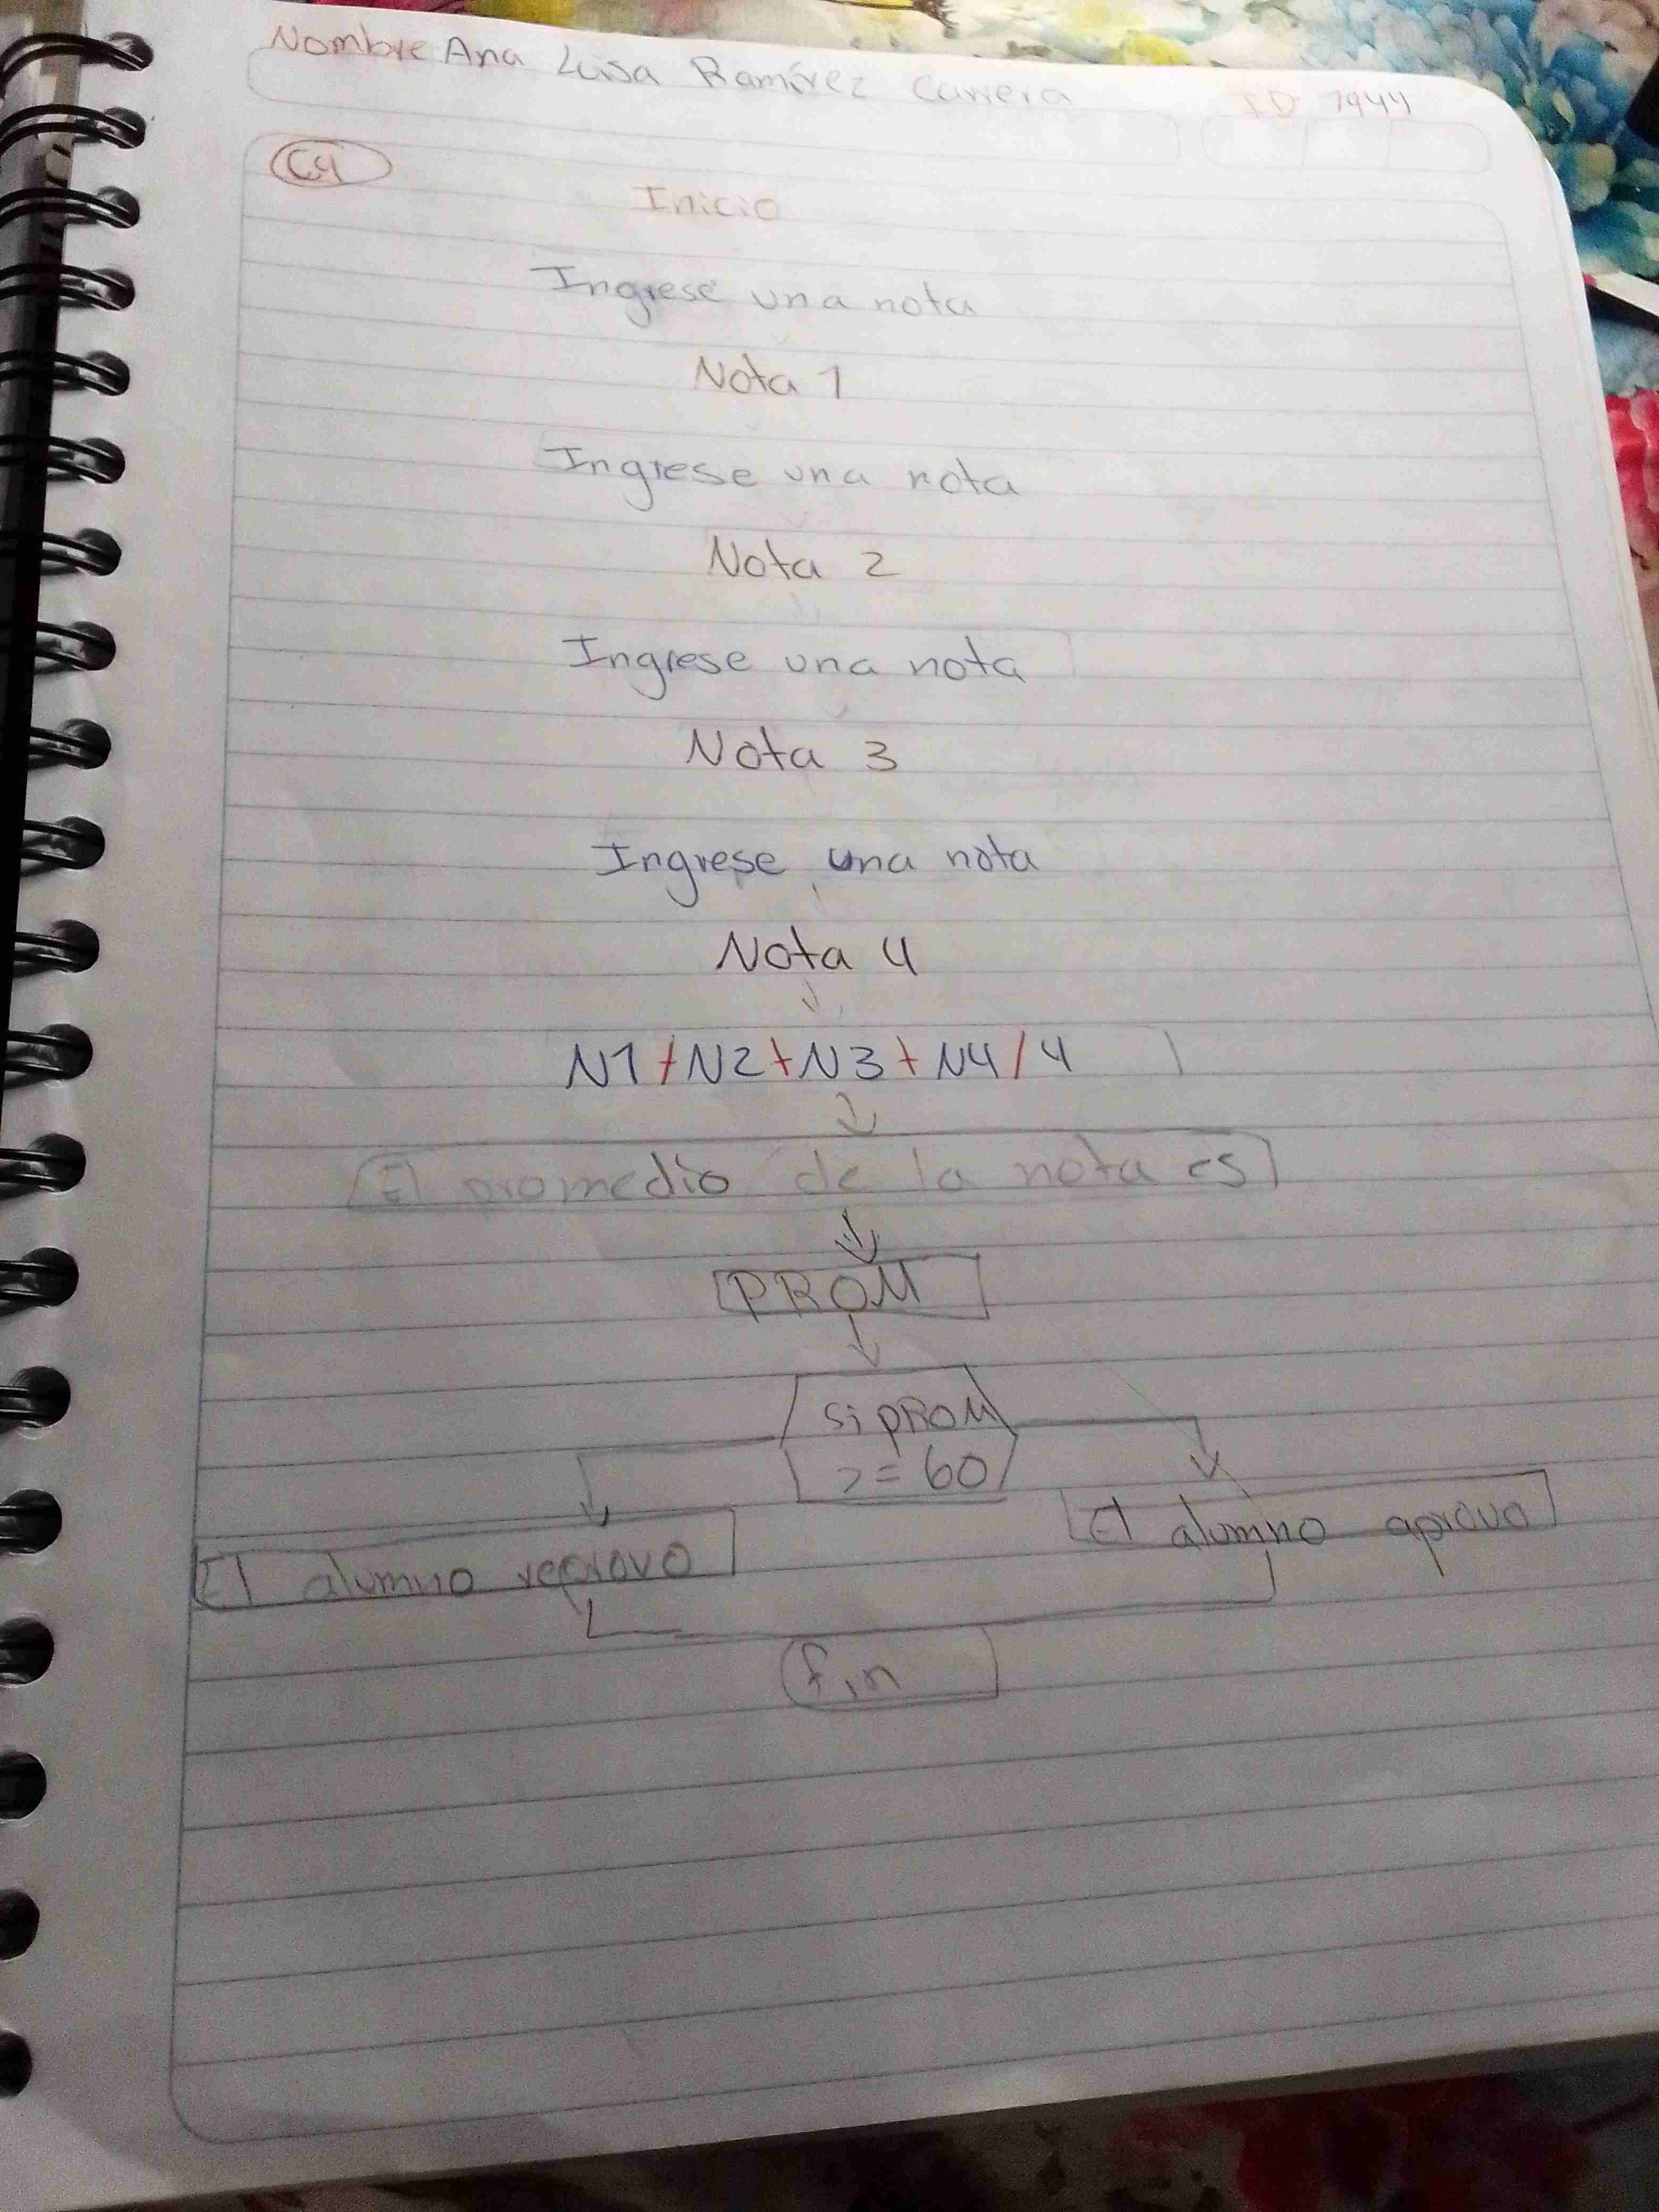 Nombre Ana Luisa Ramírez Carrera
ID 1944
C4
Inicio
Ingrese una nota
Nota 1
Ingrese una nota
Nota 2
Ingrese una nota
Nota 3
Ingrese una nota
Nota 4
N1+N2+N3+N4/4
El promedio de la nota es
PROM
si PROM
>=60
El alumno aprovo
El alumno reprovo
fin